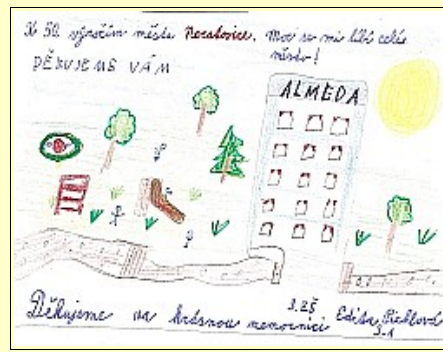 K 50. výročím města Neratovice. Moc se mi líbí celé
město!
DĚKUJEME VÁM
ALMEDA
3.ZŠ
Děkujeme za krásnou nemocnici Edita
3.A